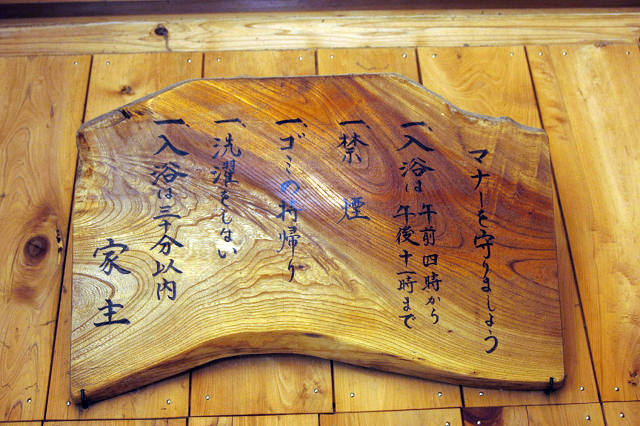 マナーを守りましょう
一、入浴は午前四時から
午後十一時まで
一、禁煙
一、ゴミの持帰り
一、洗濯をしない
一、入浴は三十分以内
家主